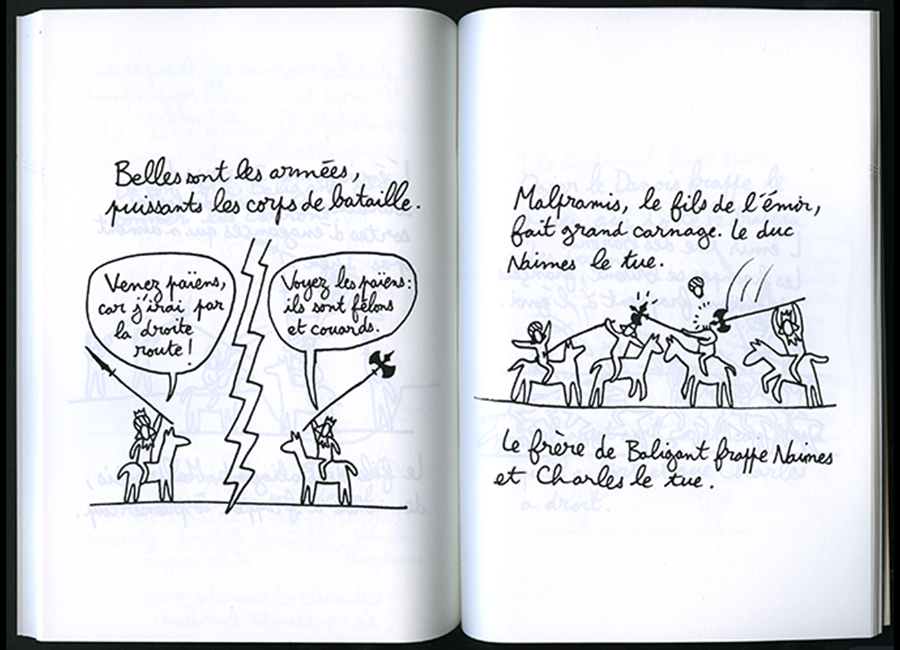 Belles sont les armées,
puissants les corps de bataille.
Venez païens,
car j'irai par
la droite
route!
Voyez les païens:
ils sont félons
et couards.
Malpramis, le fils de l'émir,
fait grand carnage. Le duc
Naimes le tue.
Le frère de Baligant frappe Naimes
et Charles le tue.